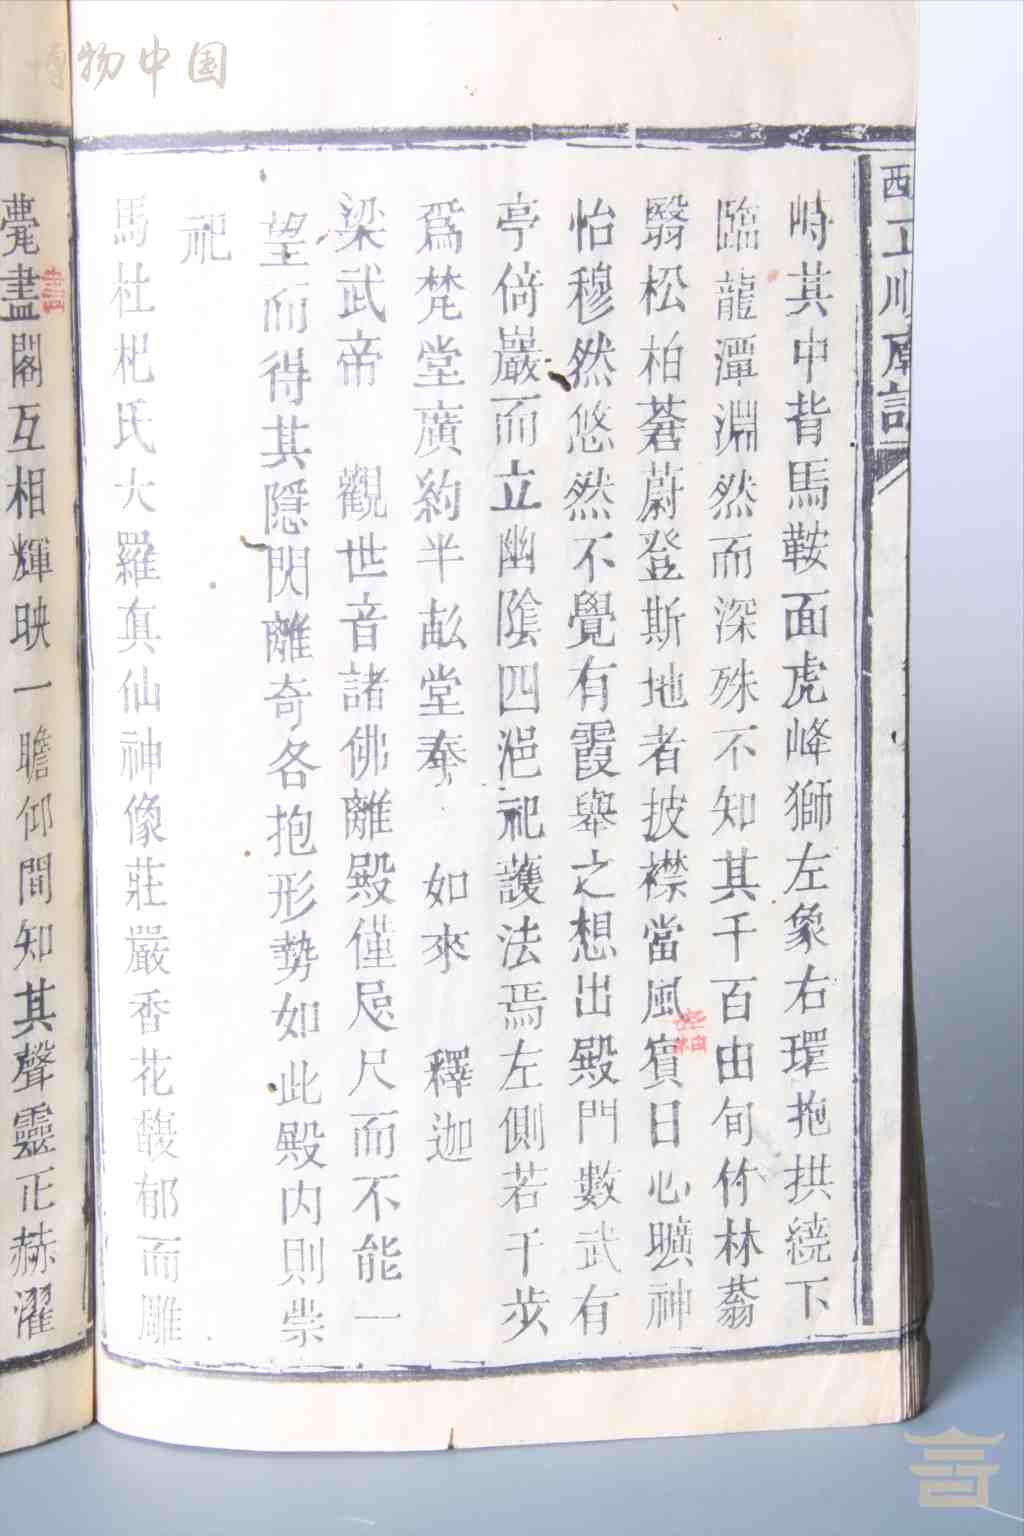 博物中国
峙其中背馬鞍面虎峰獅左象右環抱拱繞下
臨龍潭淵然而深殊不知其千百由旬竹林蓊
翳松柏蒼蔚登斯地者披襟當風賓日心曠神
怡穆然悠然不覺有霞舉之想出殿門數武有
亭倚巖而立幽陰四浥祀護法焉左側若干步
爲梵堂廣約半畝堂奉 如來 釋迦
梁武帝 觀世音諸佛離殿僅咫尺而不能一
望而得其隱閃離奇各抱形勢如此殿内則崇
祀
馬杜杞氏大羅真仙神像莊嚴香花馥郁而雕
甍畫閣互相輝映一瞻仰間知其聲靈正赫濯